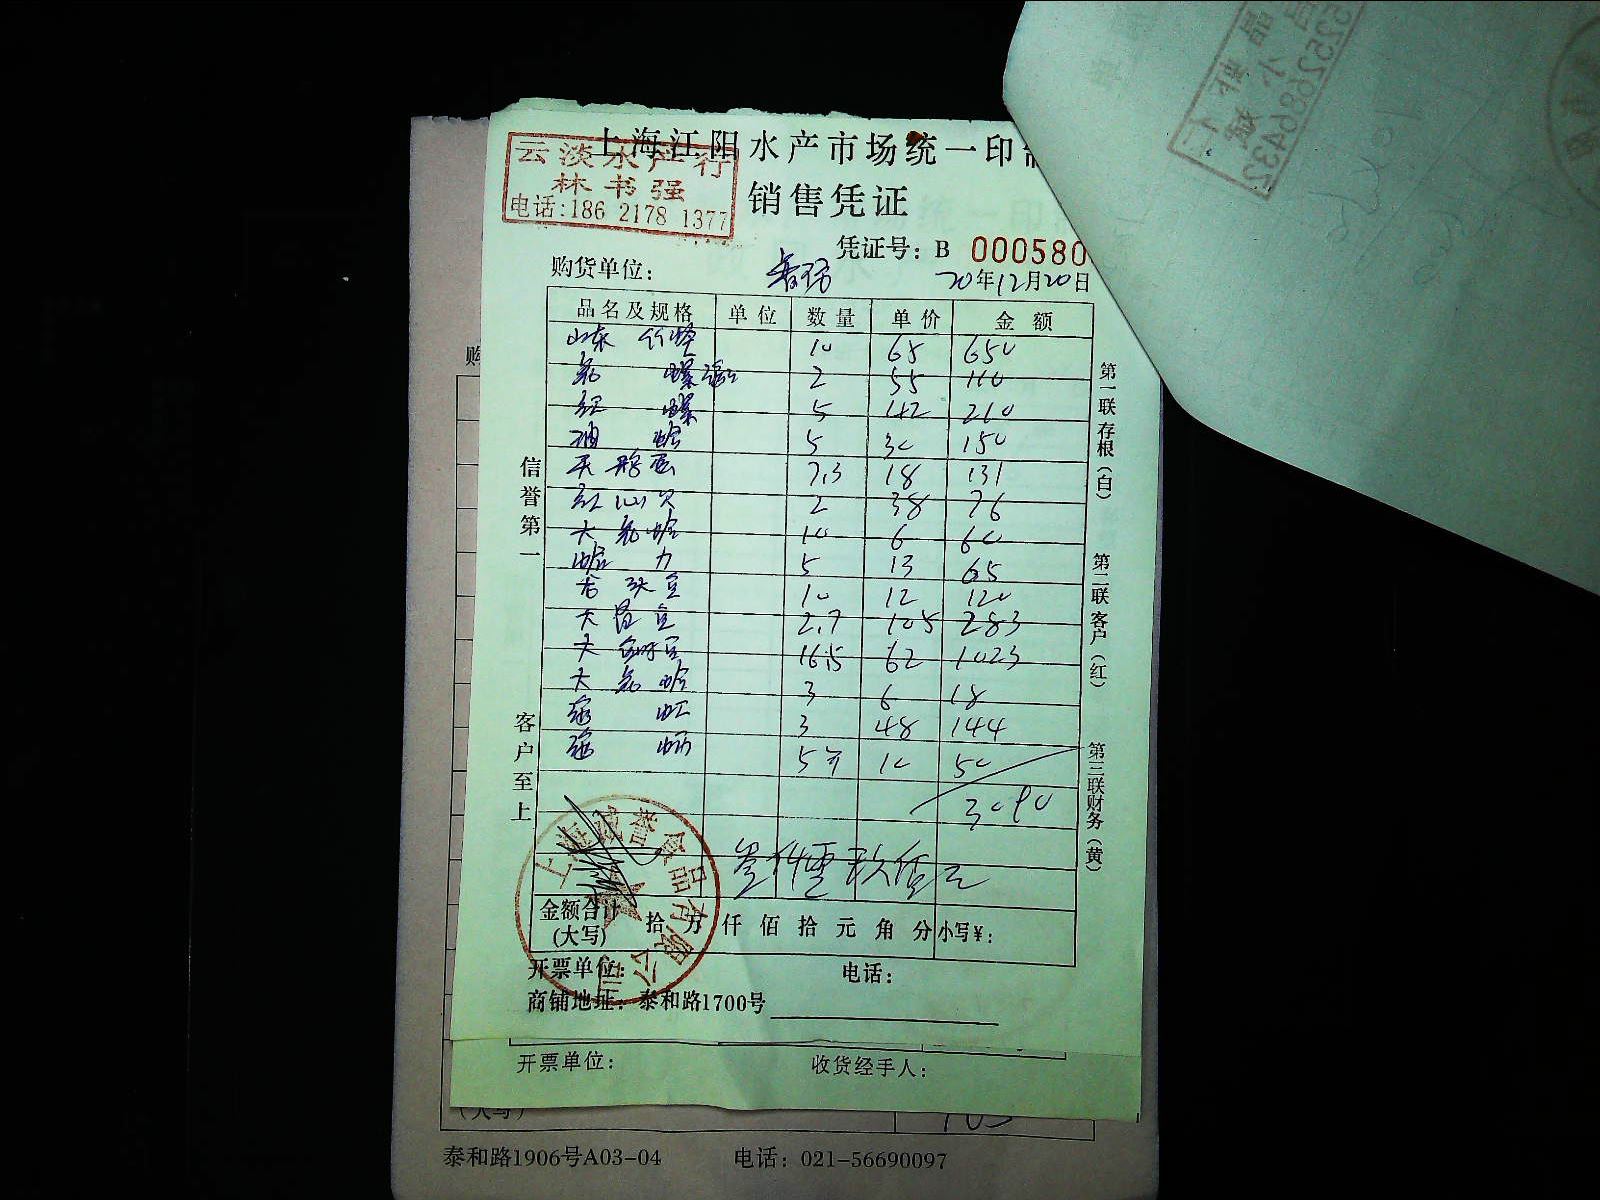 上海江阳水产市场统一印制
云淡水产行
林书强
电话:186 2178 1377
销售凭证
凭证号: B 000580
购货单位:
20年12月20日
品名及规格 单位 数量 单价 金额
山东 竹蛏 10 65 650
花 螺 2 55 110
红 螺 5 42 210
油 蛤 5 30 150
7.3 18 131
红心贝 2 38 76
大花蛤 10 6 60
蛤 力 5 13 65
10 12 120
大 2.7 105 283
大 16.5 62 1023
大花蛤 3 6 18
虾 3 48 144
5斤 10 50
3090
叁仟零玖佰元
金额合计
(大写)
拾 万 仟 佰 拾 元 角 分 小写¥:
开票单位: 电话:
商铺地址: 泰和路1700号
信誉第一
客户至上
第一联存根(白)
第二联客户(红)
第三联财务(黄)
上海诚誉食品有限公司
开票单位: 收货经手人:
(大写) 103
泰和路1906号A03-04 电话: 021-56690097
购